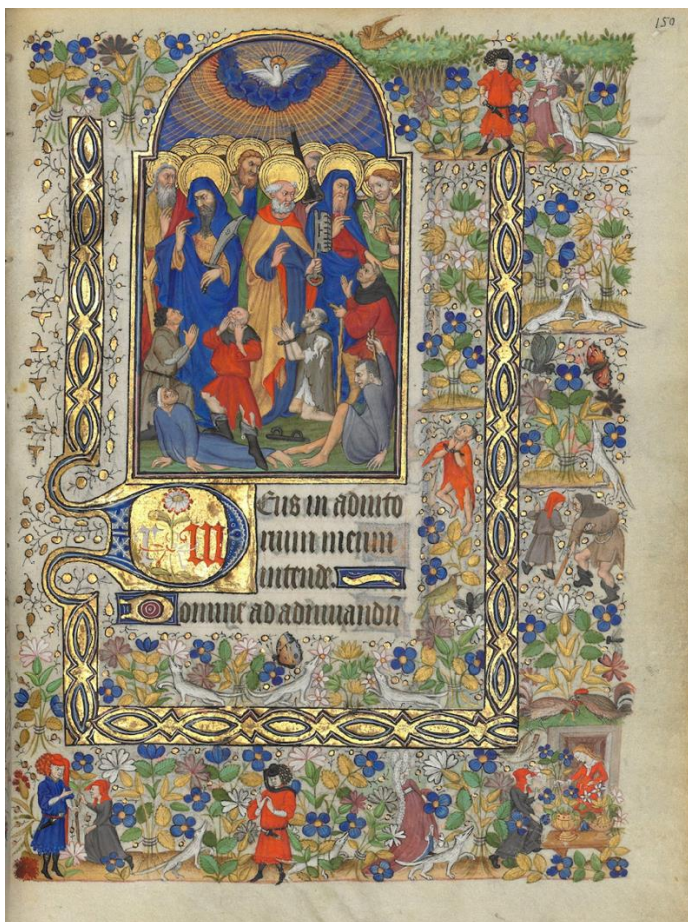 150
Deus in adiuto
rium meum
intende.
Domine ad adiuuandū